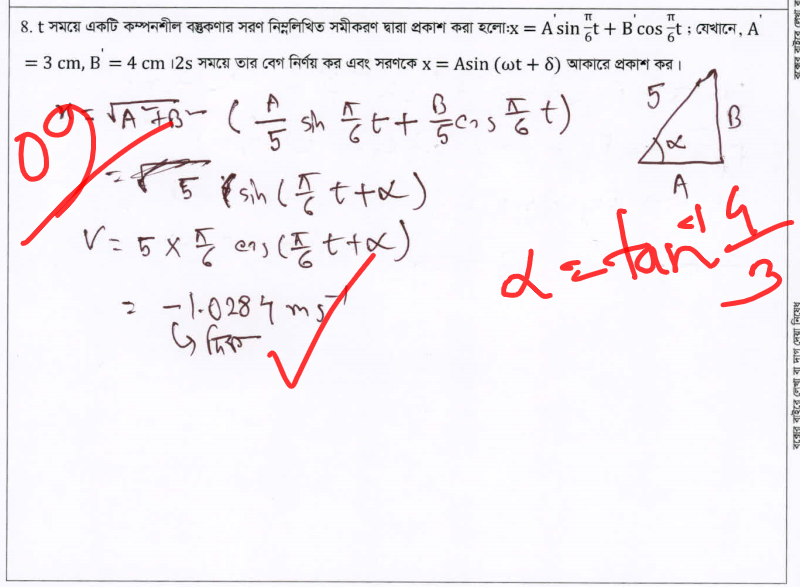 8. t সময়ে একটি কম্পনশীল বস্তুকণার সরণ নিম্নলিখিত সমীকরণ দ্বারা প্রকাশ করা হলোঃx = A'sin π/6 t + B'cos π/6 t ; যেখানে, A'
= 3 cm, B' = 4 cm ।2s সময়ে তার বেগ নির্ণয় কর এবং সরণকে x = Asin (ωt + δ) আকারে প্রকাশ কর।
09
x = √A²+B² (A/5 sin π/6 t + B/5 cos π/6 t)
5
B
α
A
= 5 sin (π/6 t + α)
V = 5 × π/6 cos (π/6 t + α)
α = tan⁻¹ 4/3
= -1.0284 ms⁻¹
↳ দিক
বক্সের বাইরে লেখা বা দাগ দেয়া নিষেধ